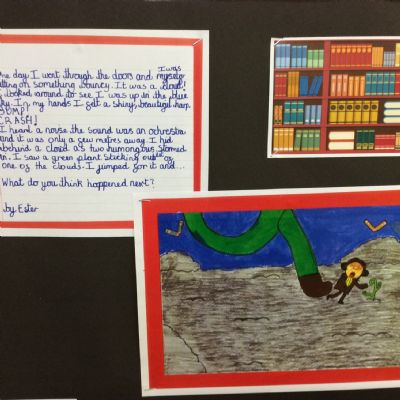 One day I went through the doors and I was myself
sitting on something bouncy. It was a cloud!
I looked around to see I was up in the blue
sky. In my hands I felt a shiny, beautiful harp.
BUMP!
CRASH!
I heard a noise the sound was an ochrestra
and it was only a few metres away. I hid
behind a cloud as two humongous stomed
in. I saw a green plant sticking out of
one of the clouds. I jumped for it and...
What do you think happened next?
by Ester